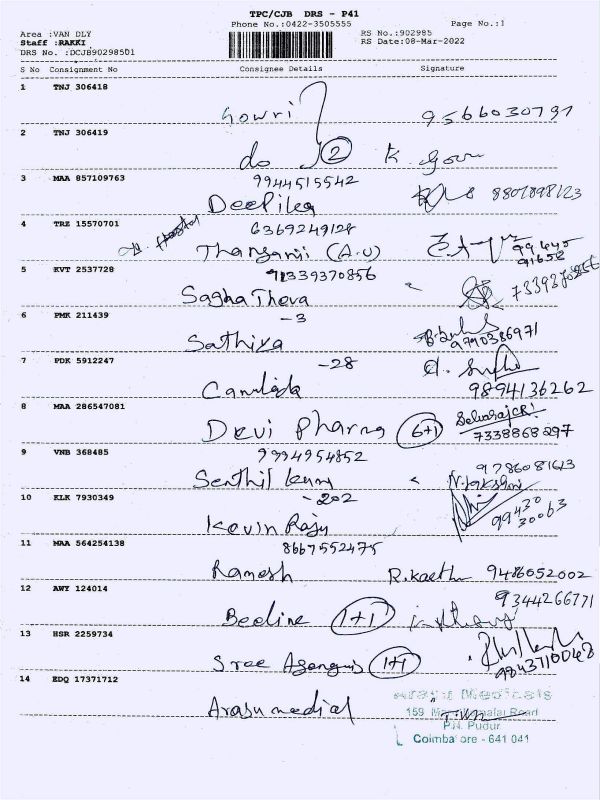 TPC/CJB DRS - P41
Phone No.:0422-3505555
Page No.:1
Area :VAN DLY
Staff :RAKKI
DRS No. :DCJB90298501
RS No.:902985
RS Date:08-Mar-2022
S No Consignment No Consignee Details Signature
1 TNJ 306418
Gowri 9566030791
2 TNJ 306419
do 2 K. Gow
3 MAA 857109763
9944515542
Deepika 8807898123
4 TRZ 15570701
6369249128
Thangamji (A.U) 99445
91658
5 KVT 2537728
91339370856
SaghaTheva 7339370856
6 PMK 211439
-3
Sathiya 9790386971
7 PDK 5912247
-28
9894136262
8 MAA 286547081
Devi Pharma 6+1 Selvaraj
7338868297
9 VNB 368485
9994954852
Senthil kum 9786081613
N. Lakshmi
10 KLK 7930349
-202
Kevin Raju 99430
30063
11 MAA 564254138
8667552475
Ramesh R. Kaeth 9486052002
12 AWY 124014
9344266771
Beeline 1+1
13 HSR 2259734
Sree Agengus 1+1 9843710048
14 EDQ 17371712
Arasu medial
Arasu Medicals
159 Road
P.N. Pudur
Coimbatore - 641 041